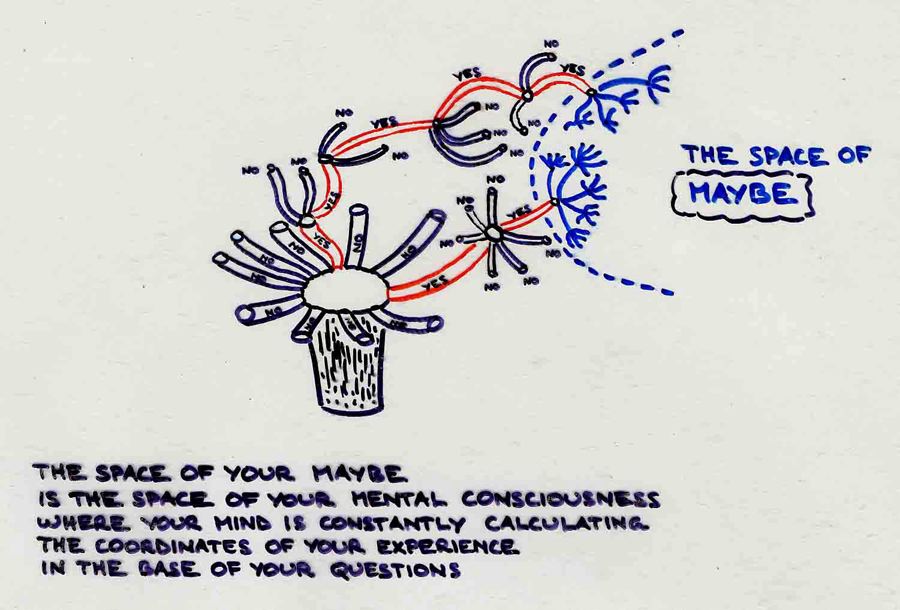 NO
YES
YES
NO
YES
NO
NO
NO
NO
NO
THE SPACE OF
MAYBE
NO
NO
NO
YES
NO
YES
NO
YES
NO
NO
NO
NO
NO
NO
YES
NO
NO
NO
NO
NO
NO
THE SPACE OF YOUR MAYBE
IS THE SPACE OF YOUR MENTAL CONSCIOUSNESS
WHERE YOUR MIND IS CONSTANTLY CALCULATING
THE COORDINATES OF YOUR EXPERIENCE
IN THE BASE OF YOUR QUESTIONS